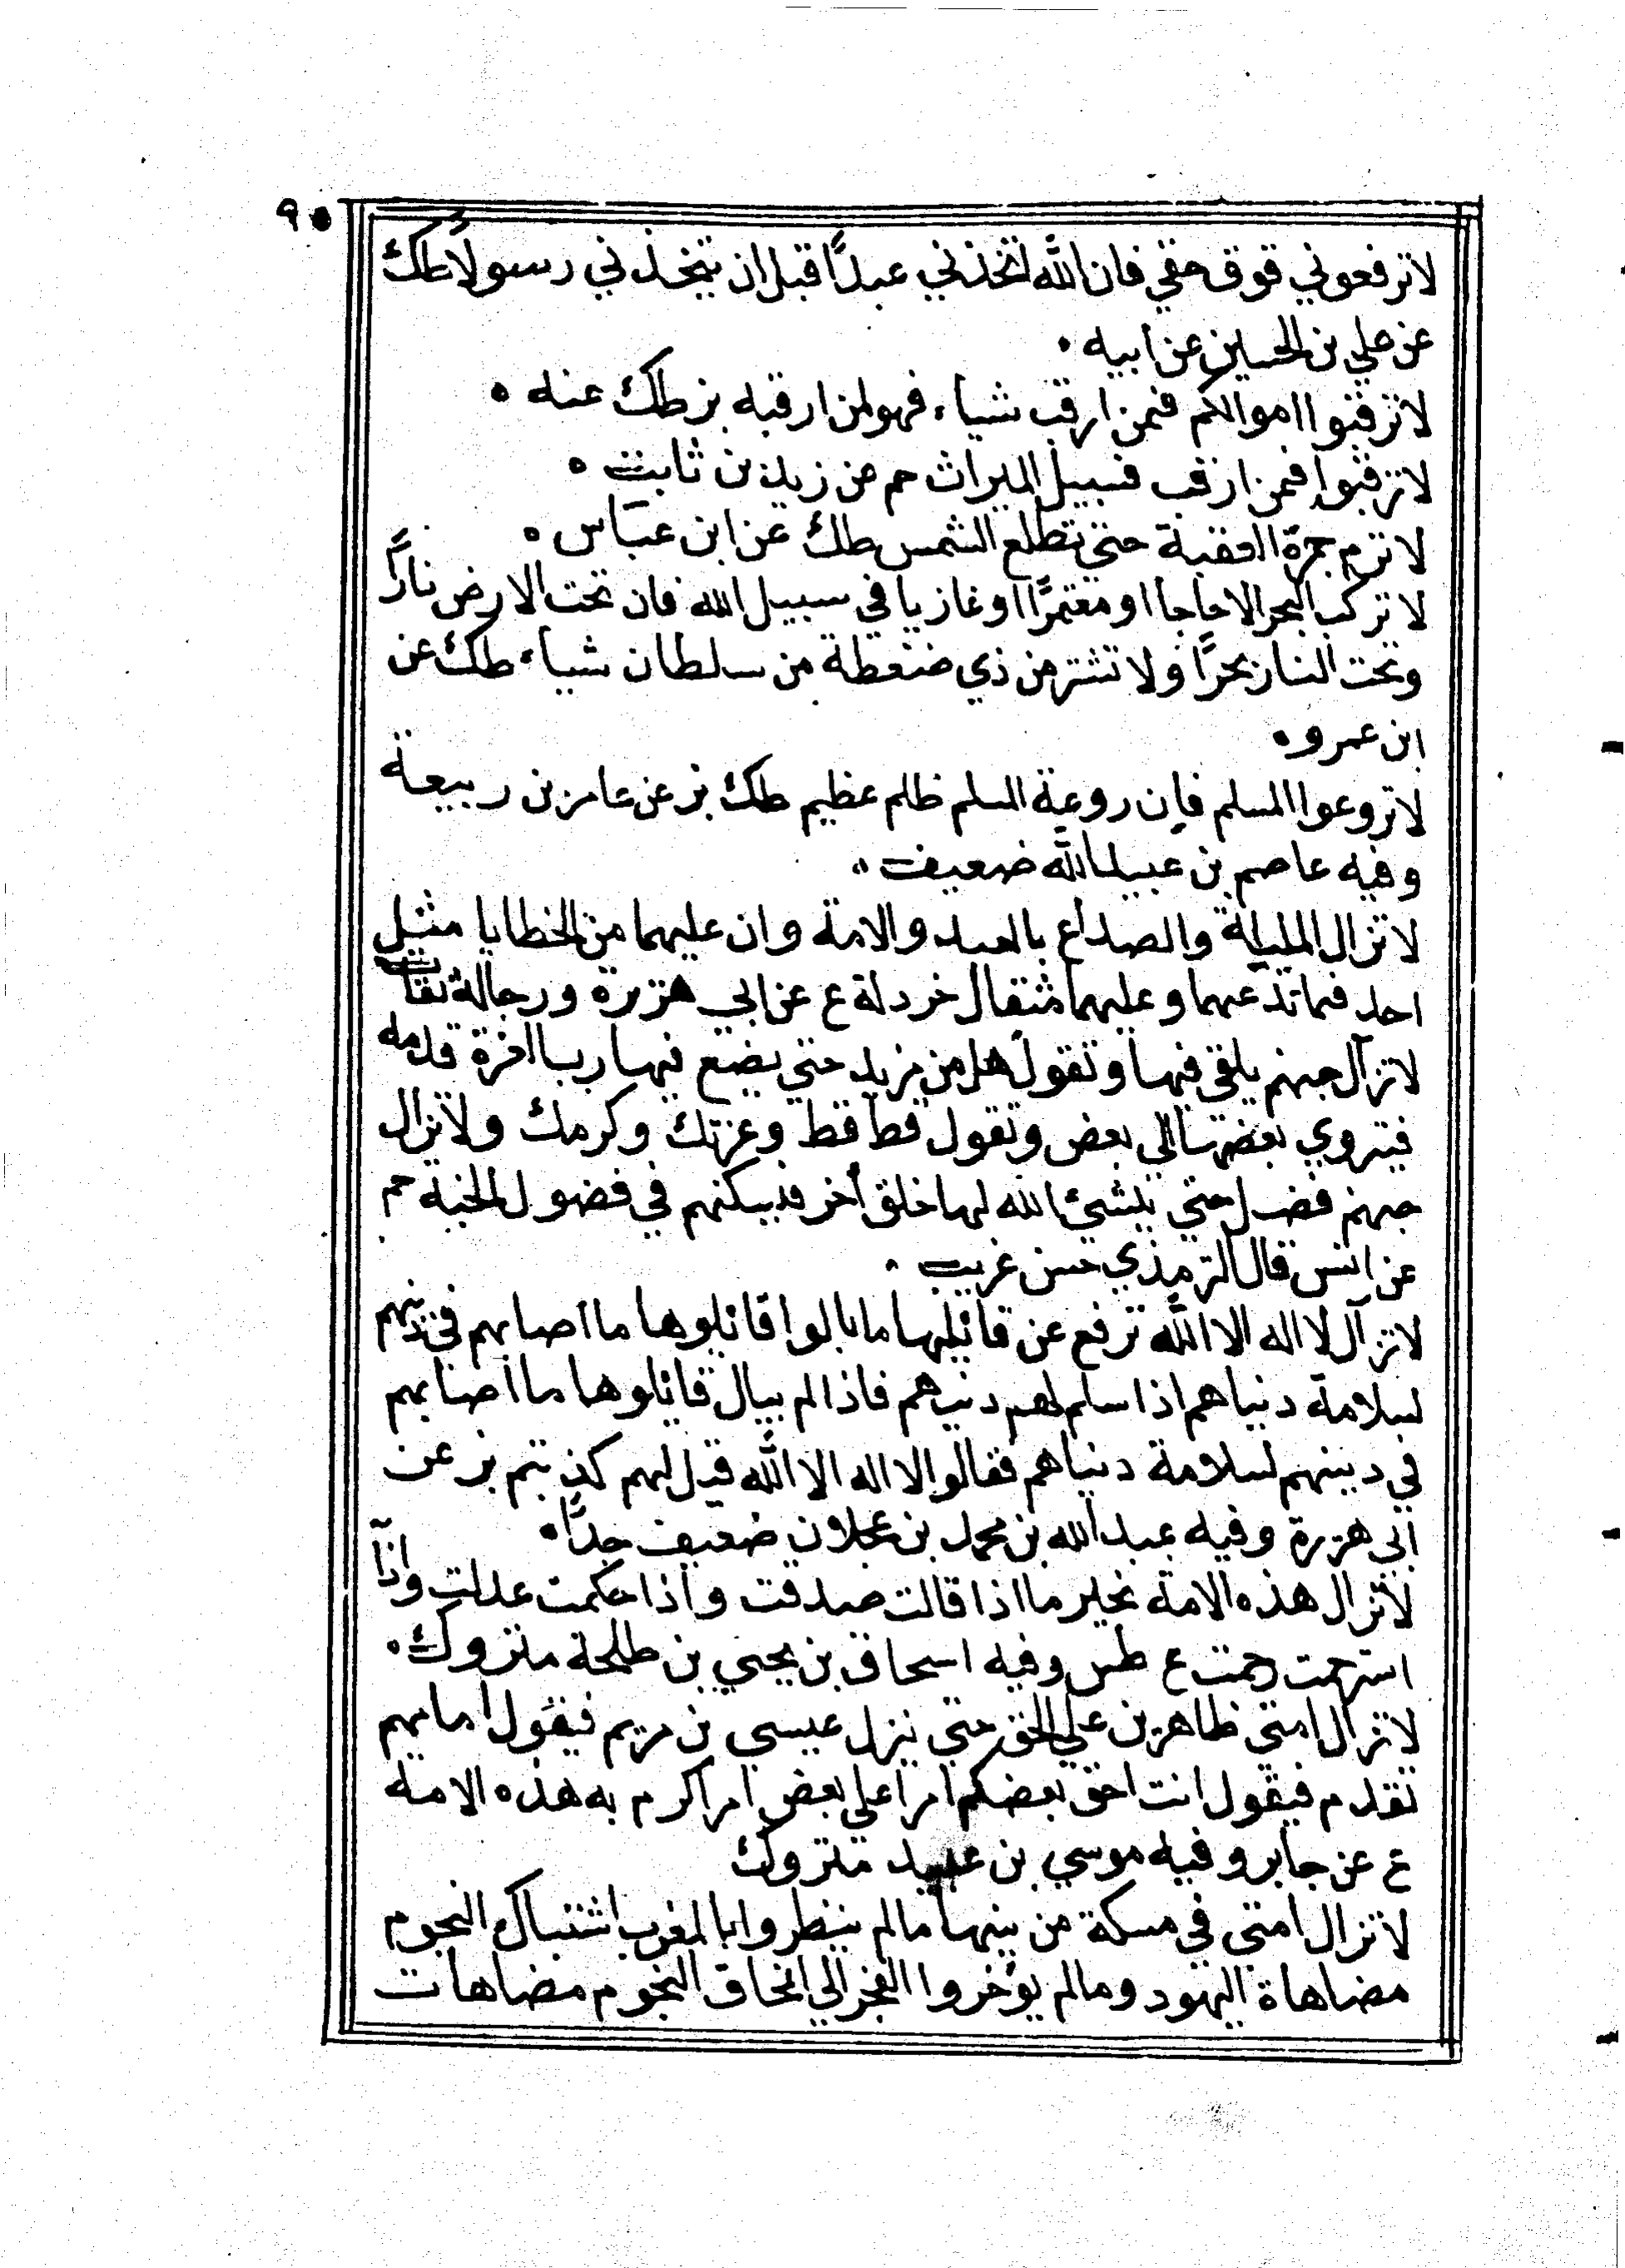 ٩٠
لا ترفعوني فوق حقي فان الله اتخذني عبدًا قبل ان يتخذني رسولًا طك
عن علي بن الحسين عن ابيه
لا ترقبوا اموالكم فمن ارقب شياء فهو لمن ارقبه بز طك عنه
لا ترقبوا فمن ارقب فسبيل الميراث حم عن زيد بن ثابت
لا ترم جمرة العقبة حتى تطلع الشمس طك عن ابن عباس
لا تركب البحر الا حاجا او معتمرًا او غازيا في سبيل الله فان تحت الارض نارًا
وتحت النار بحرًا ولا تشتر من ذي ضغطة من سلطان شياء طك عن
ابن عمرو
لا تروعوا المسلم فإن روعة المسلم ظلم عظيم طك بز عن عامر بن ربيعة
وفيه عاصم بن عبيد الله ضعيف
لا تزال المليلة والصداع بالعبد والامة وان عليهما من الخطايا مثل
احد فما تدعهما وعليهما مثقال خردلة ع عن ابي هريرة ورجاله ثقات
لا تزال جهنم يلقى فيها وتقول هل من مزيد حتي يضع فيها رب العزة قدمه
فينزوي بعضها الي بعض وتقول قط قط وعزتك وكرمك ولا تزال
جهنم فضل حتي ينشئ الله لها خلق أخر فيسكنهم في فضول الجنة حم
عن انس قال الترمذي حسن غريب
لا تزال لا اله الا الله ترفع عن قائلها ما بالوا قائلوها ما اصابهم في دينهم
لسلامة دنياهم اذا سلم لهم دنياهم فاذا لم يبال قائلوها ما اصابهم
في دينهم لسلامة دنياهم فقالوا لا اله الا الله قيل لهم كذبتم بز عن
ابي هريرة وفيه عبد الله بن محمد بن عجلان ضعيف جدًّا
لا تزال هذه الامة بخير ما اذا قالت صدقت واذا حكمت عدلت واذا
استرحمت رحمت ع طس وفيه اسحاق بن يحيي بن طلحة متروك
لا تزال امتي ظاهرين علي الحق حتي ينزل عيسي بن مريم فيقول امامهم
تقدم فيقول انت احق بعضكم امرا علي بعض امر اكرم به هذه الامة
ع عن جابر وفيه موسي بن عبيد متروك
لا تزال امتي في مسكة من دينها ما لم ينظروا بالمغرب اشتباك النجوم
مضاهاة اليهود وما لم يؤخروا الفجر الي انمحاق النجوم مضاهات